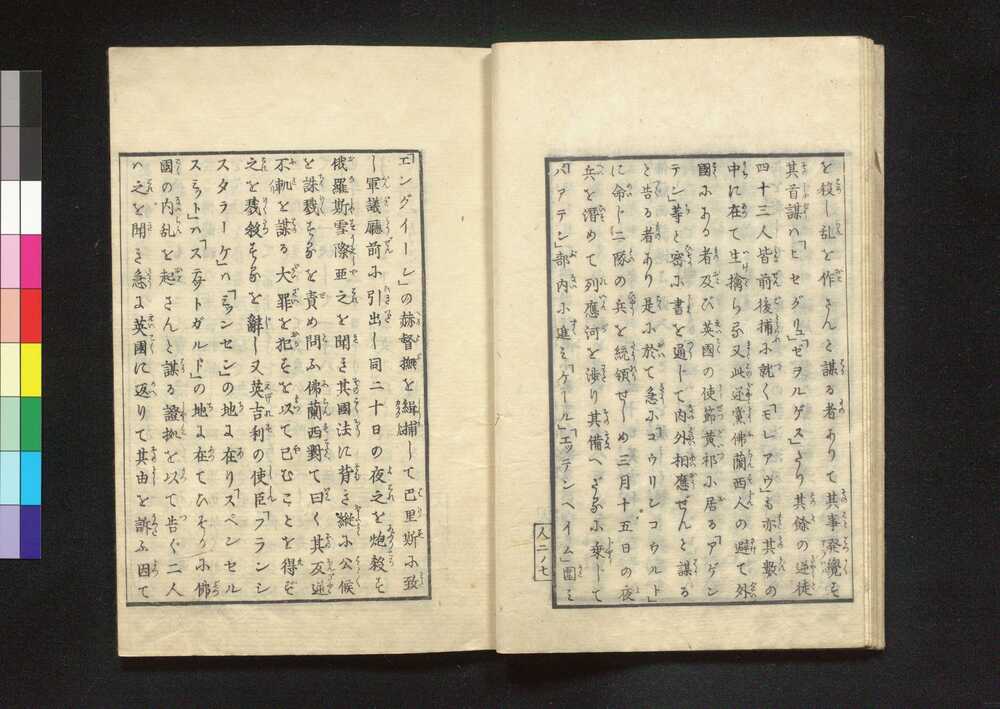 を殺し乱を作さんと謀る者ありて其事発覚せ
其首謀ハ「ヒセグリュ」「ゼヲルゲス」たり其餘の逆徒
四十三人皆前後捕ふ就く「モレアウ」も亦其数の
中に在て生擒らる又此逆黨佛蘭西人の避て外
國ふある者及び英國の使節黄祁ふ居る「アゲン
テン」等と密ふ書を通して内外相應ぜんと謀る
と告る者あり是ふ於て急ふ「コウリンコウルト」
に命じ二隊の兵を統領せしめ三月十五日の夜
兵を潜めて列應河を渉り其備へざるふ乗して
「バアテン」部内ふ進ミ「ケール」「エッテンヘイム」圍ミ
人二ノ七
「エングイーン」の赫督撫を緝捕して巴里斯ふ致
し軍議廳前ふ引出し同二十日の夜之を炮殺せ
俄羅斯雪際亜之を聞き其國法に背き縦ふ公候
を誅戮するを責め問ふ佛蘭西對て曰く其反逆
不軌を謀る大罪を犯すを以て已むことを得ず
之を戮殺するを辭し又英吉利の使臣「フランシ
スタラーケ」ハ「ミッンセン」の地に在り「スペンセル
スミット」ハ「スチュットガルド」の地に在てひそかふ佛
國の内乱を起さんと謀る證拠を以て告ぐ二人
ハ之を聞き急に英國に返りて其由を訴ふ因て